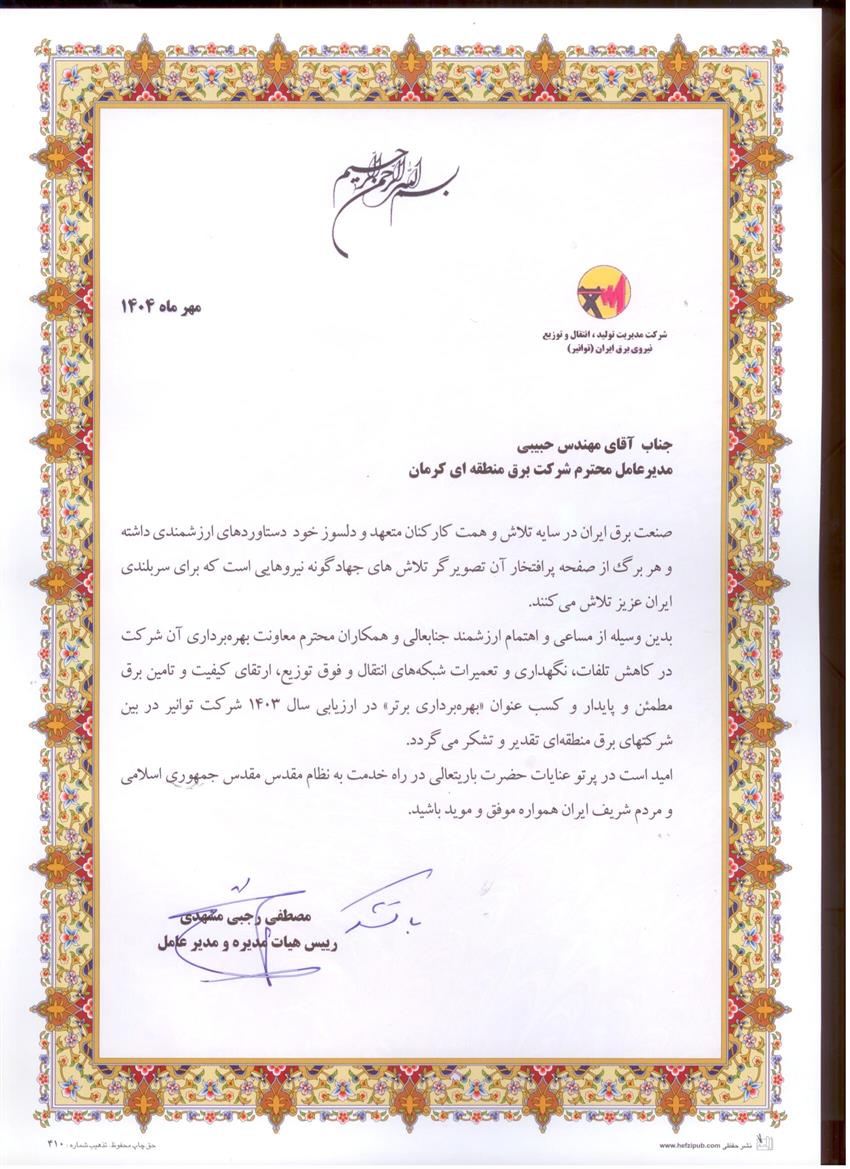 بسم الله الرحمن الرحیم
مهر ماه ۱۴۰۴
شرکت مدیریت تولید، انتقال و توزیع
نیروی برق ایران (توانیر)
جناب آقای مهندس حبیبی
مدیرعامل محترم شرکت برق منطقه ای کرمان
صنعت برق ایران در سایه تلاش و همت کارکنان متعهد و دلسوز خود دستاوردهای ارزشمندی داشته
و هر برگ از صفحه پرافتخار آن تصویرگر تلاش های جهادگونه نیروهایی است که برای سربلندی
ایران عزیز تلاش می‌کنند.
بدین وسیله از مساعی و اهتمام ارزشمند جنابعالی و همکاران محترم معاونت بهره‌برداری آن شرکت
در کاهش تلفات، نگهداری و تعمیرات شبکه‌های انتقال و فوق توزیع، ارتقای کیفیت و تامین برق
مطمئن و پایدار و کسب عنوان «بهره‌برداری برتر» در ارزیابی سال ۱۴۰۳ شرکت توانیر در بین
شرکتهای برق منطقه‌ای تقدیر و تشکر می‌گردد.
امید است در پرتو عنایات حضرت باریتعالی در راه خدمت به نظام مقدس مقدس جمهوری اسلامی
و مردم شریف ایران همواره موفق و موید باشید.
با تشکر
مصطفی رجبی مشهدی
رییس هیات مدیره و مدیر عامل
نشر حفظی www.hefzipub.com
حق چاپ محفوظ. تذهیب شماره: ۴۱۰